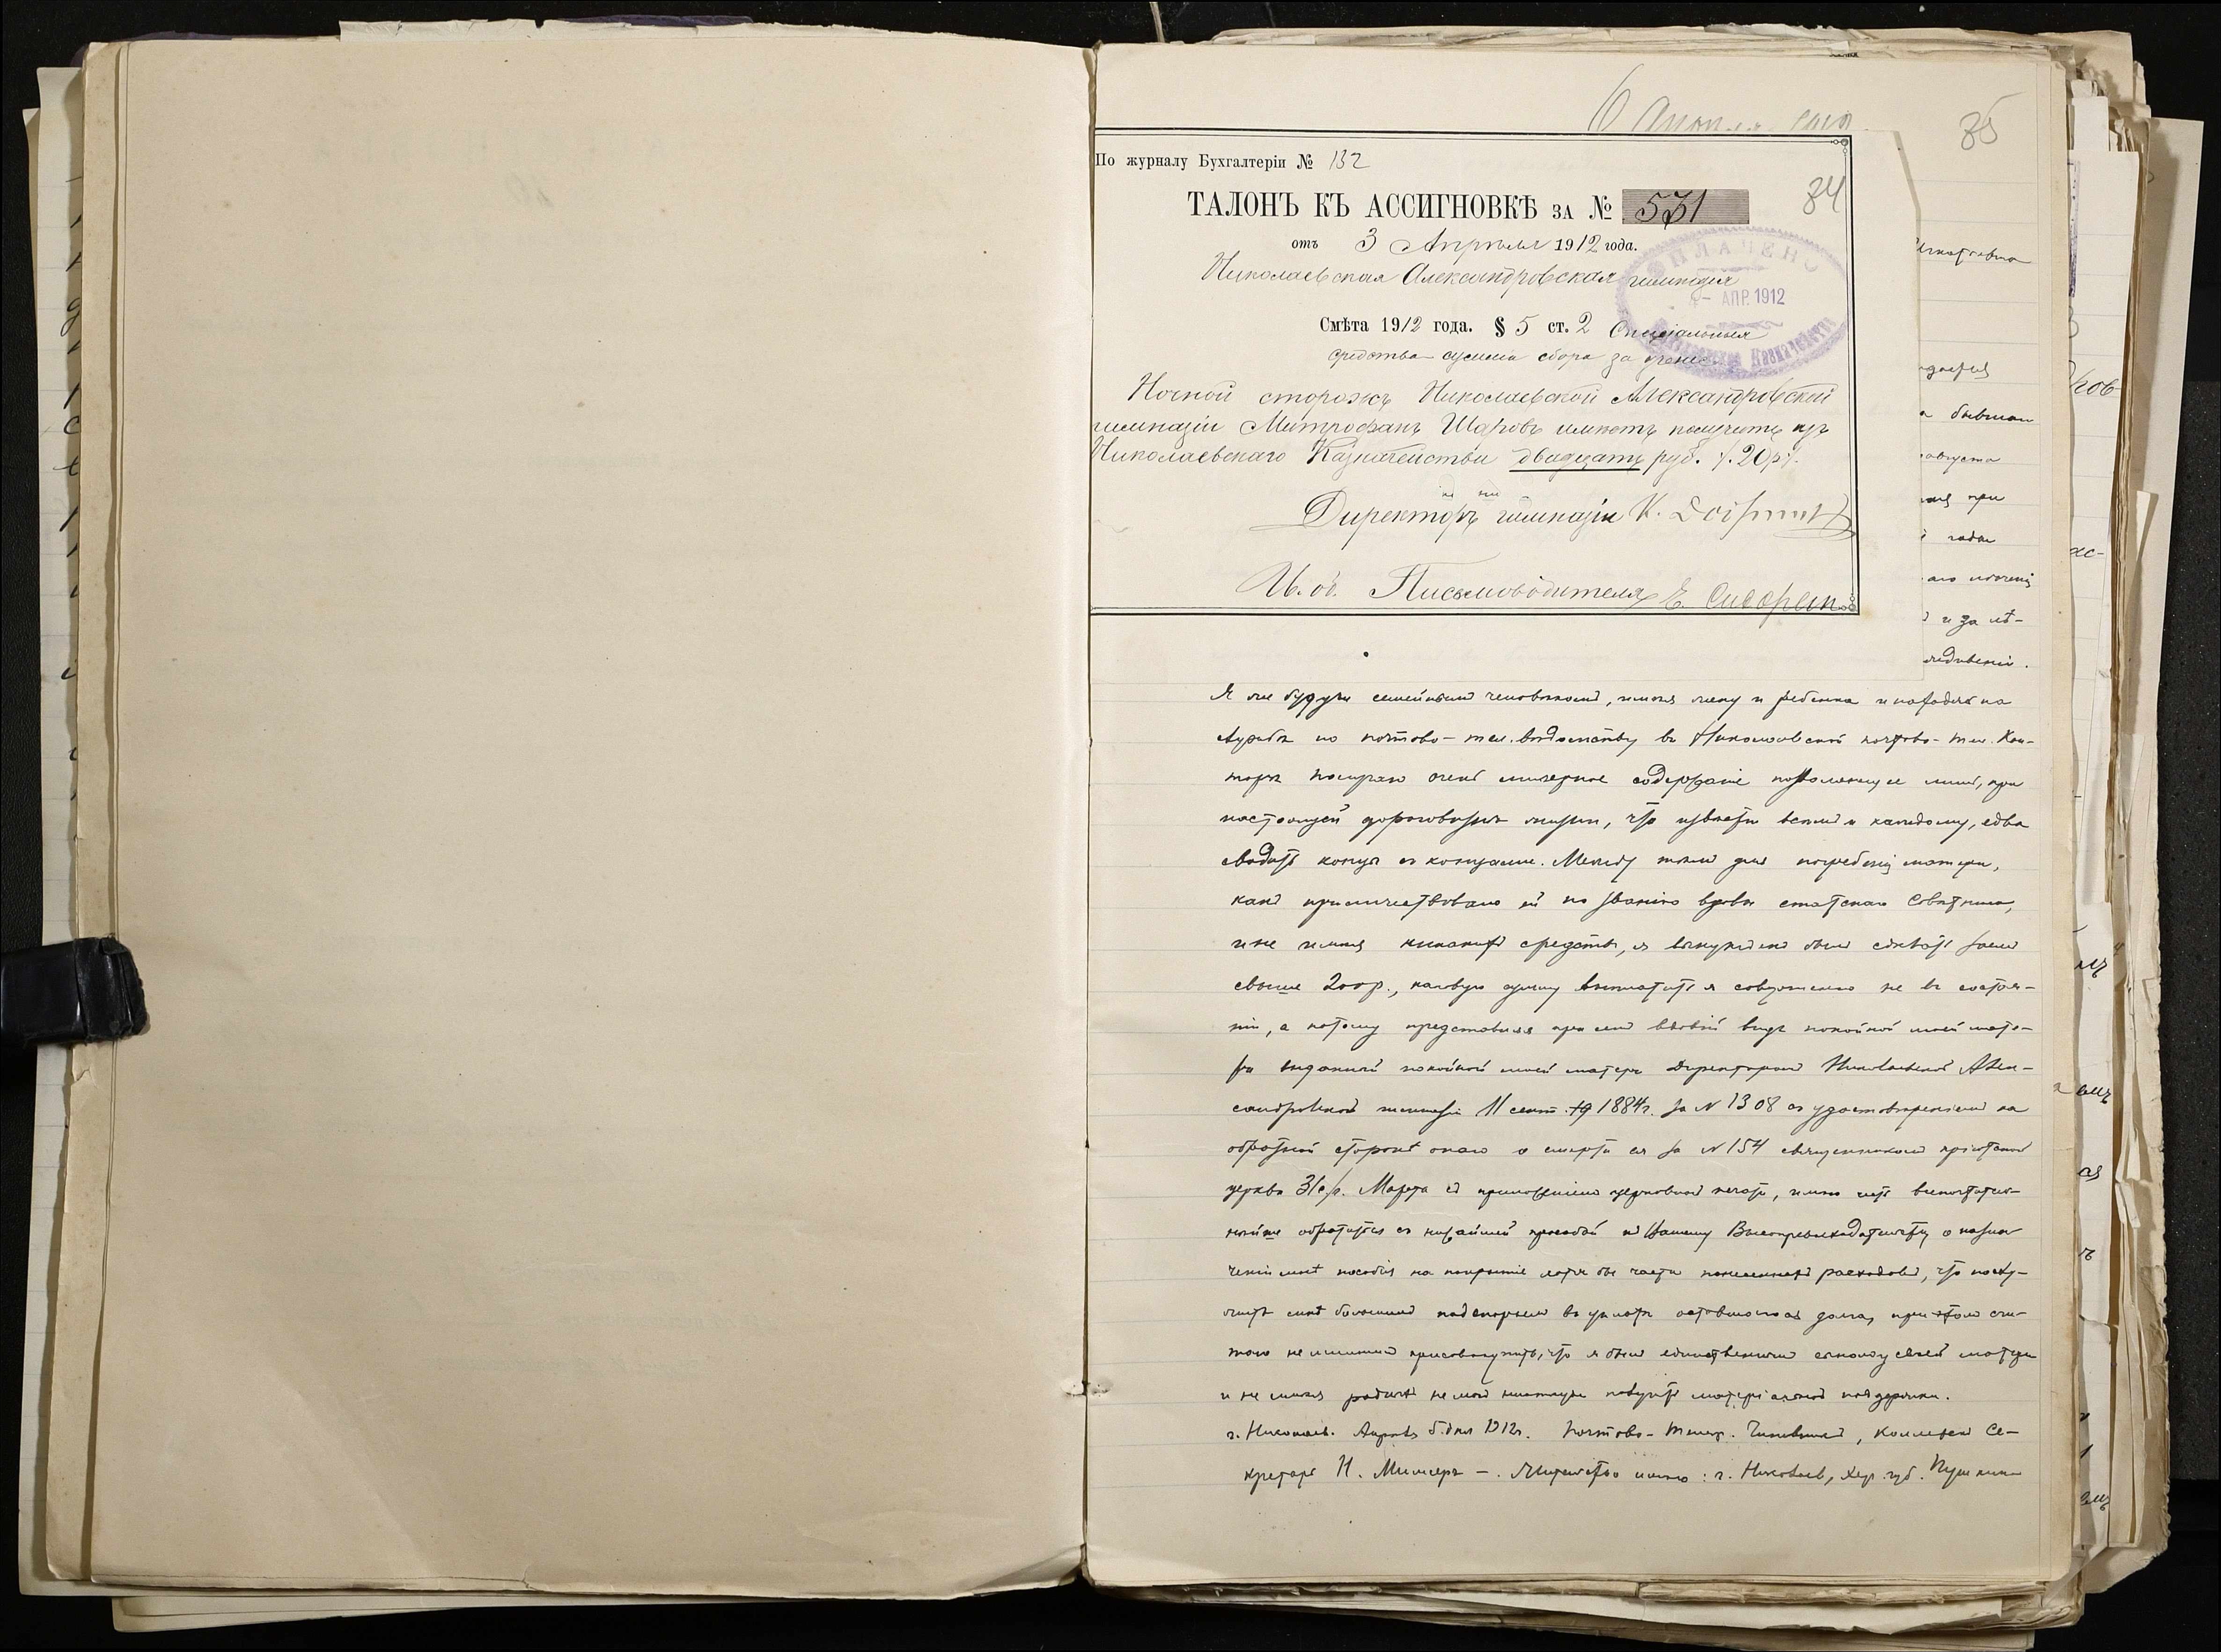 6 Апрѣля
85
По журналу Бухгалтеріи № 132
84
ТАЛОНЪ КЪ АССИГНОВКѢ ЗА № 531
отъ 3 Апрѣля 1912 года.
Николаевская Александровская гимназія
ОПЛАЧЕНО
4 - АПР. 1912
Казначейство
Смѣта 1912 года. § 5 ст. 2 Спеціальныя
средства сумма сбора за ученіе
Ночной сторожъ Николаевской Александровской
гимназіи Митрофанъ Шаровъ имѣетъ получить изъ
Николаевскаго Казначейства двадцать руб. /. 20 р /.
Директоръ гимназіи К.
И. об. Письмоводителя Е.
бывшая
августа
при
года
и за лѣ-
Я же будучи семейнымъ человѣкомъ, имѣя жену и ребенка и находясь на
службѣ по почтово-тел. вѣдомству въ Николаевской почтово-тел. Кон-
торѣ получаю очень мизерное содержаніе позволяющее лишь, при
настоящей дороговизнѣ жизни, что извѣстно всѣмъ и каждому, едва
сводить концы съ концами. Между тѣмъ для погребенія матери,
какъ приличествовало ей по званію вдовы статскаго Совѣтника,
и не имѣя никакихъ средствъ, я вынужденъ былъ сдѣлать заемъ
свыше 200 р., каковую сумму выплатить я совершенно не въ состоя-
ніи, а потому представляя при семъ вдовій видъ покойной моей мате-
ри выданный покойной моей матери Директоромъ Николаевской Алек-
сандровской гимназіи 11 сент. 1884 г. за № 1308 съ удостовѣреніемъ на
обратной сторонѣ онаго о смерти ея за № 154 священникомъ пріютской
церкви 31 с/г. Марта съ приложеніемъ церковной печати, имѣю честь всепочтитель-
нѣйше обратиться съ нижайшей просьбой къ Вашему Высокопревосходительству о назна-
ченіи мнѣ пособія на покрытіе хотя бы части понесенныхъ расходовъ, что послу-
житъ мнѣ большимъ подспорьемъ въ уплатѣ оставшагося долга, при этомъ счи-
таю не лишнимъ присовокупить, что я былъ единственнымъ сыномъ у своей матери
и не имѣя родныхъ не могъ получить матеріальной поддержки.
г. Николаевъ. Апрѣля 5 дня 1912 г. Почтово-Телегр. Чиновникъ, Коллежскій Се-
кретарь Н. Миллеръ -. Жительство имѣю: г. Николаевъ, Хер. губ.